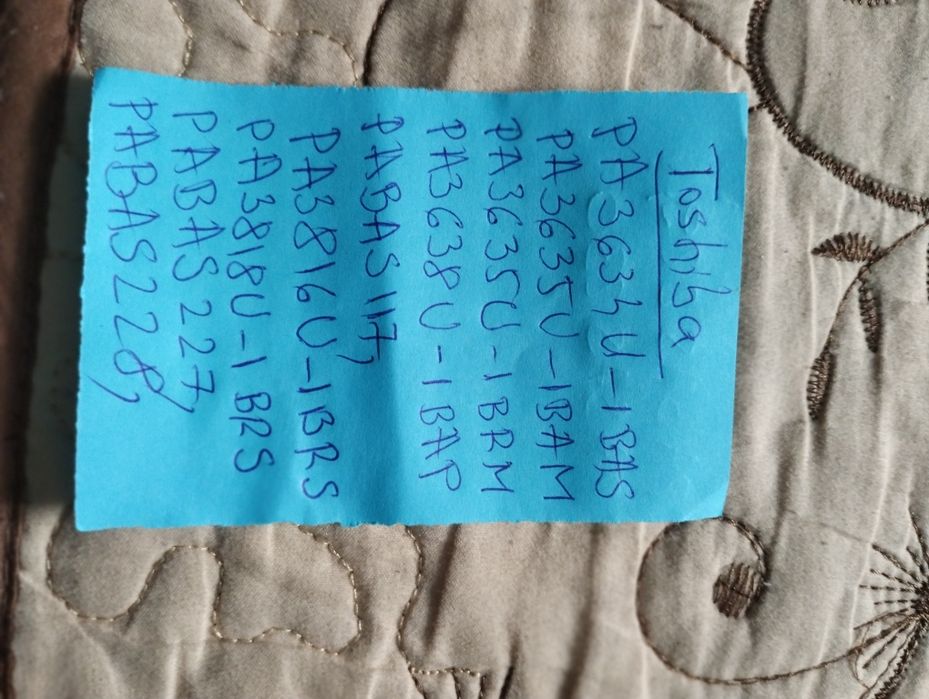 Toshiba
PA3634U-1BAS
PA3635U-1BAM
PA3635U-1BRM
PA3638U-1BAP
PABAS117,
PA3816U-1BRS
PA3818U-1BRS
PABAS227,
PABAS228,